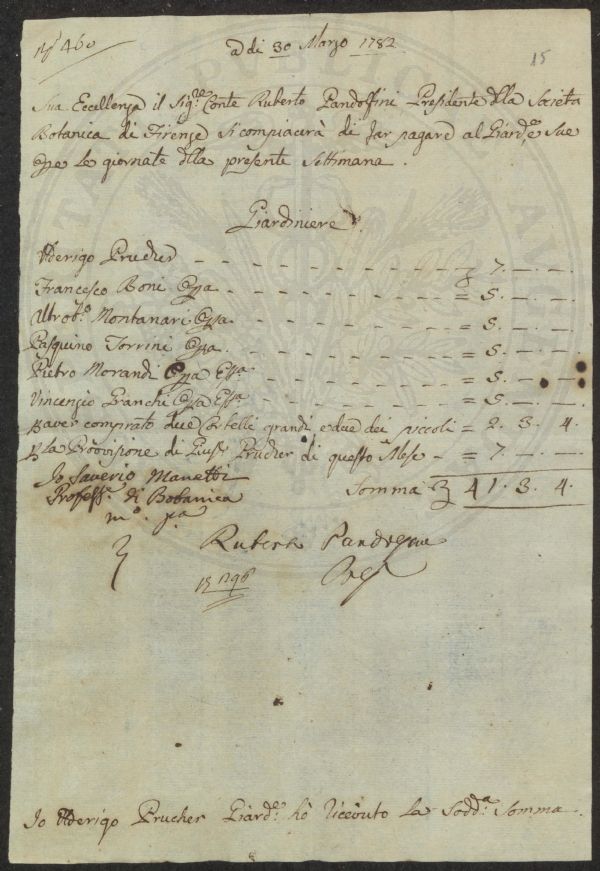 N° 460
a di 30 Marzo 1782
15
Sua Eccellenza il Sig.re Conte Ruberto Pandolfini Presidente dlla Società
Botanica di Firenze si compiacerà di far pagare al Giard.e Sue
le giornate dlla presente Settimana.
Giardiniere
Aderigo Prucher - - - 7. — . —.
Francesco Boni - - - = 5. — . —.
Montanari - - - = 5. — . —.
Pasquino Torrini - - - = 5. — . —.
Pietro Morandi - - - = 5. — . —
Vincenzio Bianchi - - - = 5. — . —.
aver comprato due Coltelli grandi, e due dei piccoli = 2. 3. 4.
la Provisione di Prucher di questo Mese - = 7. — . —.
Io Saverio Manetti
Profess.e di Botanica
m.o p.a
Somma 41. 3. 4.
Ruberto Pandolfini
Pres
Io Aderigo Prucher Giard.e hò ricevuto la Sodd.a Somma.